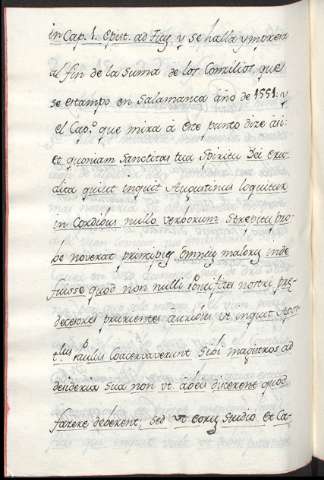 in Cap. 1. Epist. ad Tit. y se halla ympreso
al fin de la suma de los Concilios, que
se estampo en Salamanca año de 1551: y
el Cap.º que mira à este punto dize assi:
et quoniam Sanctitas tua Spiritu Dei eru-
dita quiuit inquit Augustinus loquitur
in Cordibus nullo verborum Strepitu pro-
be noverat principiũ omniũ malorũ inde
fuisse quod non nulli Pontifices nostri præ-
decesores prurientes auribus ut inquit Apos-
tolus Paulus coacervaverunt Sibi magistros ad
desideria sua non ut ab eis discerent quod
facere deberent, sed ut eorũ studio et Ca-